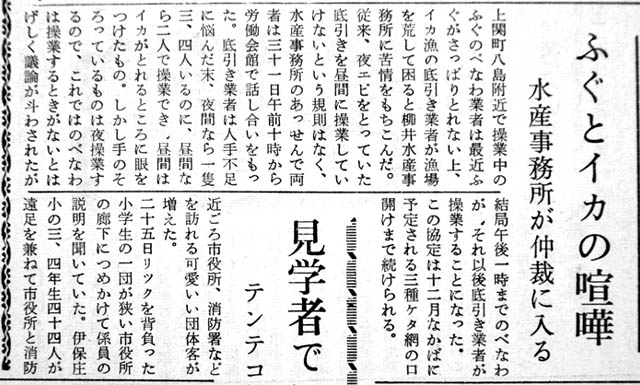 ふぐとイカの喧嘩
水産事務所が仲裁に入る
上関町八島附近で操業中の
ふぐのべなわ業者は最近ふ
ぐがさっぱりとれない上、
イカ漁の底引き業者が漁場
を荒して困ると柳井水産事
務所に苦情をもちこんだ。
従来、夜エビをとっていた
底引きを昼間に操業してい
けないという規則はなく、
水産事務所のあっせんで両
者は三十一日午前十時から
労働会館で話し合いをもっ
た。底引き業者は人手不足
に悩んだ末、夜間なら一隻
三、四人いるのに、昼間な
ら二人で操業でき、昼間は
イカがとれるところに眼を
つけたもの。しかし手のそ
ろっているものは夜操業す
るので、これではのべなわ
は操業するときがないとは
げしく議論が斗わされたが
結局午後一時までのべなわ
が、それ以後底引き業者が
操業することになった。
この協定は十二月なかばに
予定される三種ケタ網の口
開けまで続けられる。
見学者で
テンテコ
近ごろ市役所、消防署など
を訪れる可愛いい団体客が
増えた。
二十五日リックを背負った
小学生の一団が狭い市役所
の廊下につめかけて係員の
説明を聞いていた。伊保庄
小の三、四年生四十四人が
遠足を兼ねて市役所と消防